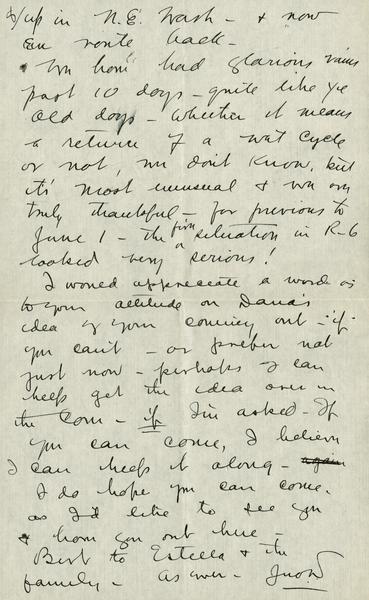 up in N.E. Wash - & now
en route back -
We have had glorious rains
past 10 days - quite like ye
old days - whether it means
a return of a wet cycle
or not, we don't know, but
it's most unusual & we are
truly thankful - for previous to
June 1 - the fire situation in R-6
looked very serious!
I would appreciate a word as
to your attitude on Dana's
idea of your coming out - if
you can't - or prefer not
just now - perhaps I can
help get the idea over in
the Com - if I'm asked - If
you can come, I believe
I can help it along - again
I do hope you can come.
as I'd like to see you
& have you out here -
Best to Estella & the
family - as ever -